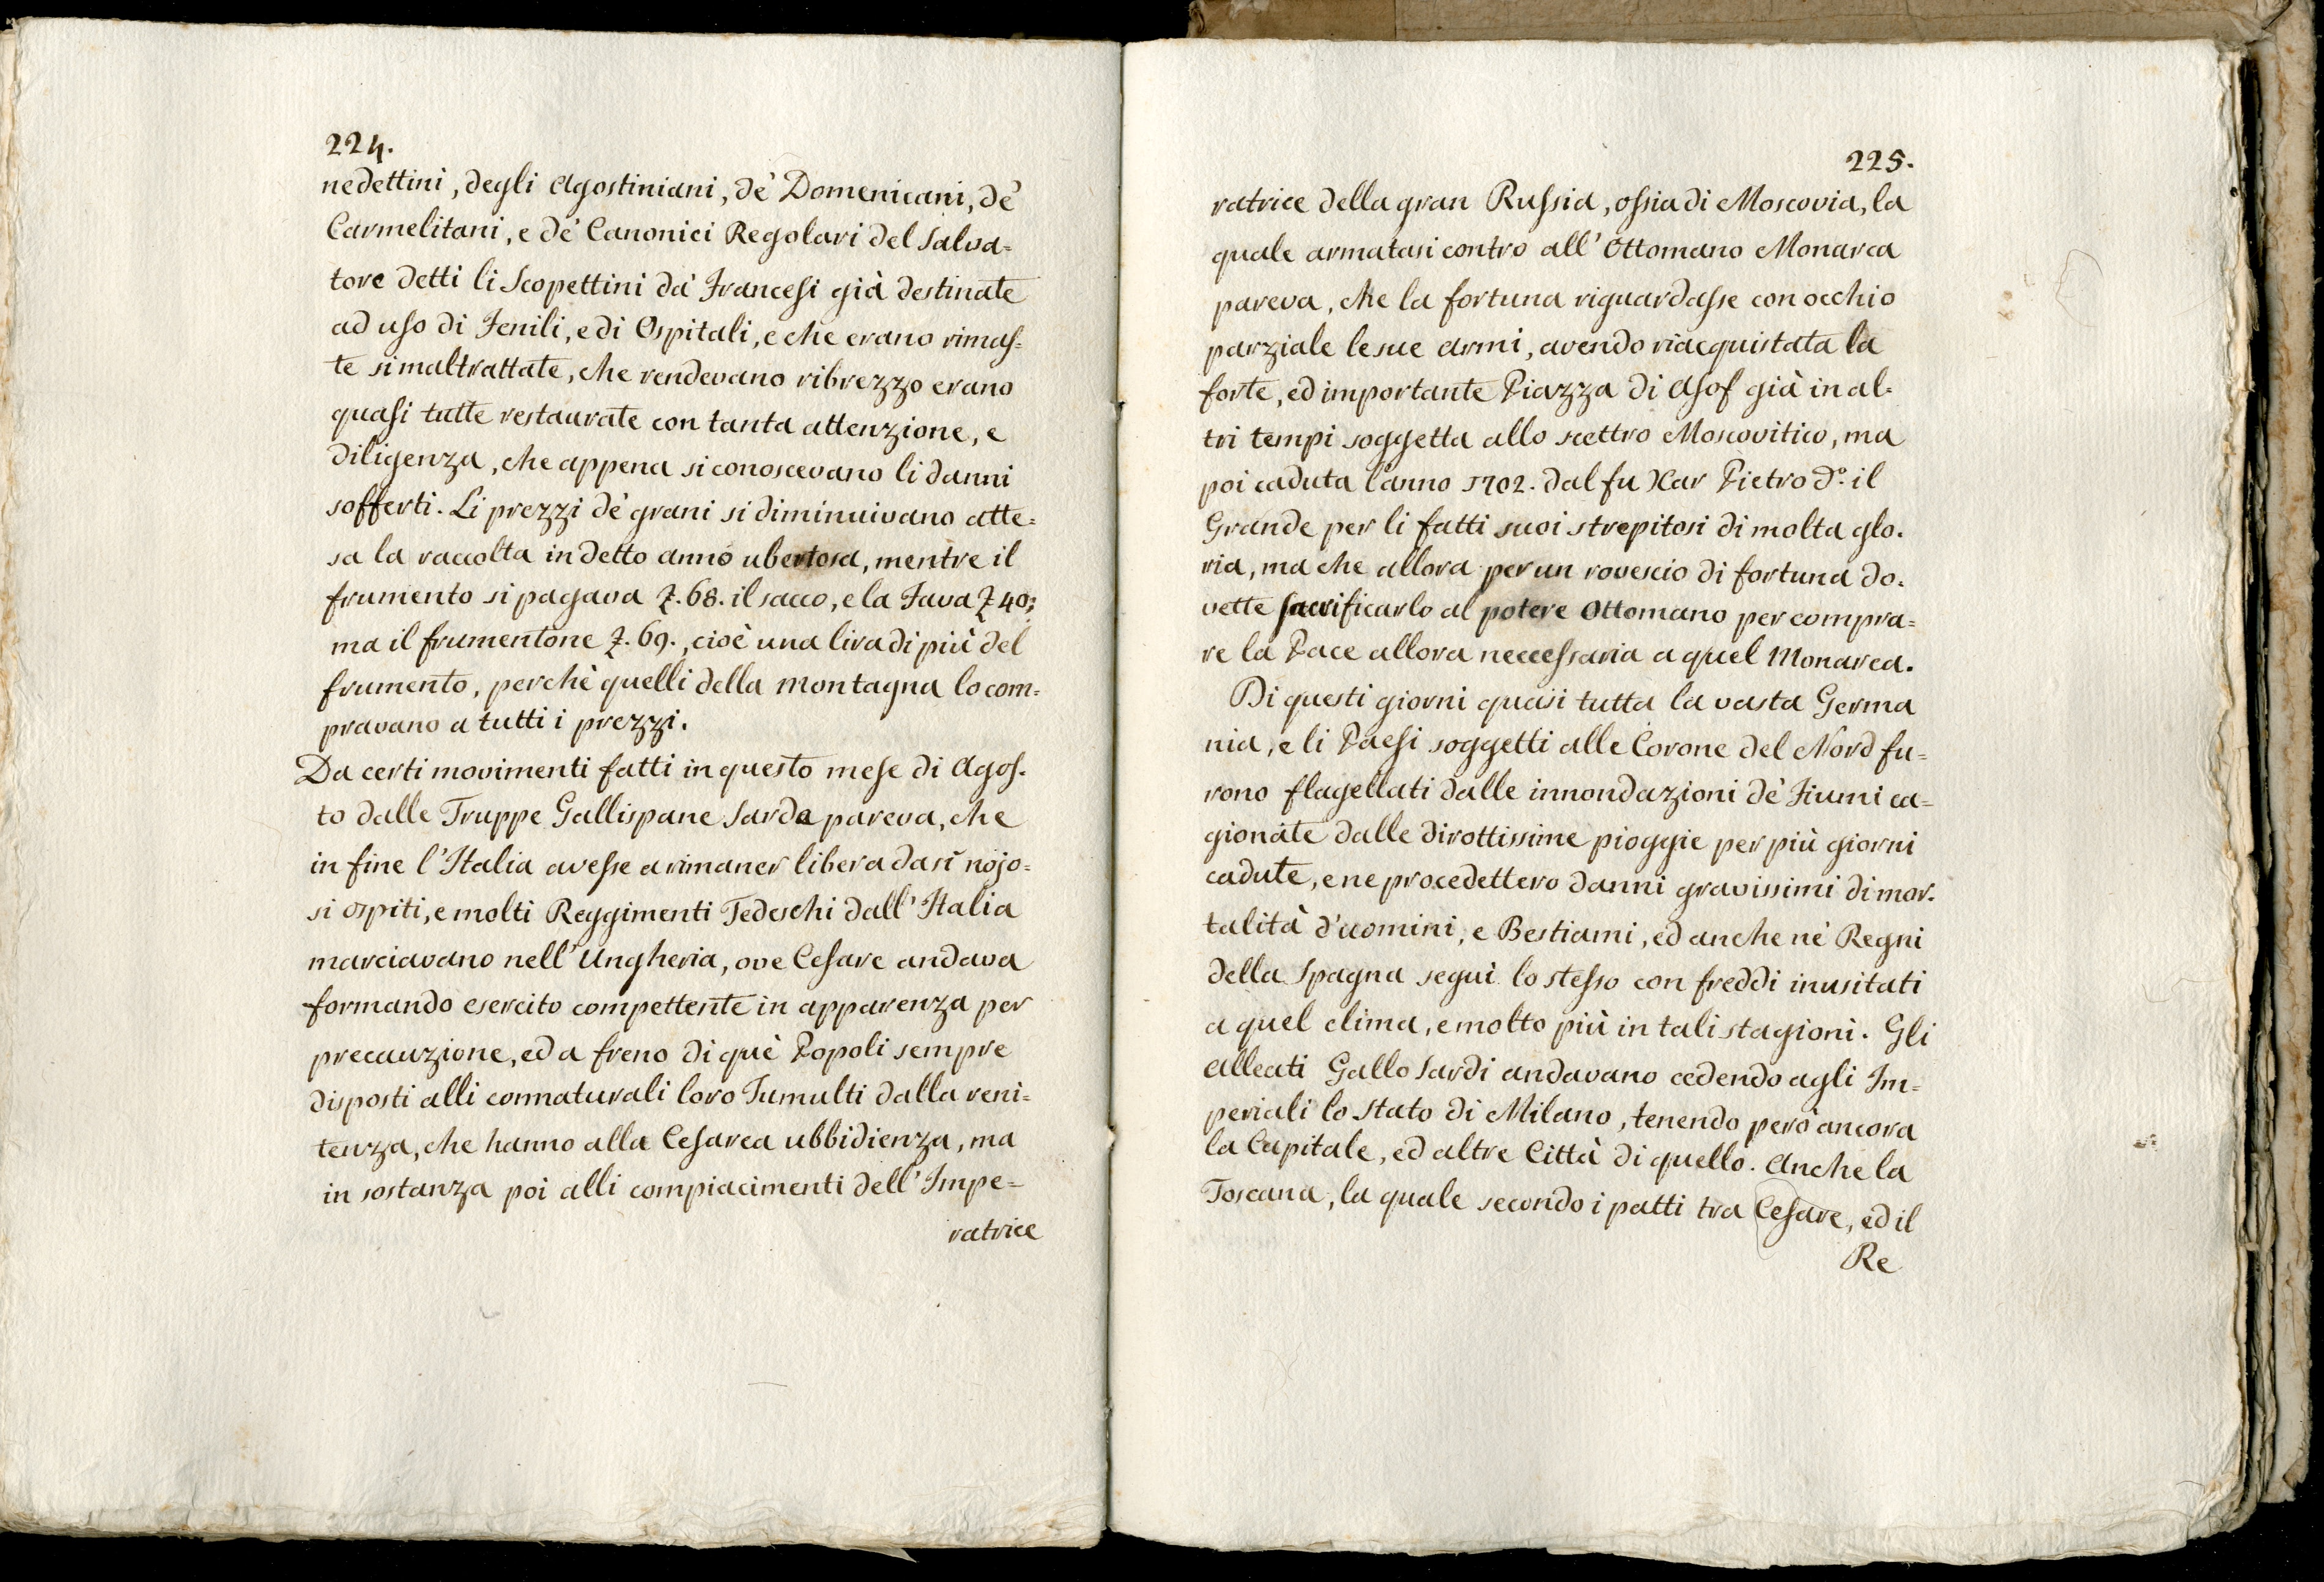 224.
nedettini, degli Agostiniani, de' Domenicani, de'
Carmelitani, e de' Canonici Regolari del Salva=
tore detti li Scopettini da' Francesi già destinate
ad uso di Fenili, e di Ospitali, e che erano rimas=
te si maltrattate, che rendevano ribrezzo erano
quasi tutte restaurate con tanta attenzione, e
diligenza, che appena si conoscevano li danni
sofferti. Li prezzi de' grani si diminuivano atte=
sa la raccolta in detto anno ubertosa, mentre il
frumento si pagava £.68. il sacco, e la Fava £ 40;
ma il frumentone £.69., cioè una lira di più del
frumento, perchè quelli della montagna lo com=
pravano a tutti i prezzi.
Da certi movimenti fatti in questo mese di Agos=
to dalle Truppe Gallispane Sarde pareva, che
in fine l'Italia avesse a rimaner libera da sì nojo=
si ospiti, e molti Reggimenti Tedeschi dall'Italia
marciavano nell'Ungheria, ove Cesare andava
formando esercito compettente in apparenza per
precauzione, ed a freno di què Popoli sempre
disposti alli connaturali loro Tumulti dalla reni=
tenza, che hanno alla Cesarea ubbidienza, ma
in sostanza poi alli compiacimenti dell'Impe=
ratrice
225.
ratrice della gran Russia, ossia di Moscovia, la
quale armatasi contro all'Ottomano Monarca
pareva, che la fortuna riguardasse con occhio
parziale le sue armi, avendo riacquistata la
forte, ed importante Piazza di Asof già in al=
tri tempi soggetta allo scettro Moscovitico, ma
poi caduta l'anno 1702. dal fu Xar Pietro d.º il
Grande per li fatti suoi strepitosi di molta glo=
ria, ma che allora per un rovescio di fortuna do=
vette sacrificarlo al potere Ottomano per compra=
re la Pace allora neccessaria a quel Monarca.
Di questi giorni quasi tutta la vasta Germa
nia, e li Paesi soggetti alle Corone del Nord fu=
rono flagellati dalle innondazioni de' Fiumi ca=
gionate dalle dirottissime pioggie per più giorni
cadute, e ne procedettero danni gravissimi di mor=
talità d'uomini, e Bestiami, ed anche ne' Regni
della Spagna seguì lo stesso con freddi inusitati
a quel clima, e molto più in tali stagioni. Gli
alleati Gallo Sardi andavano cedendo agli Im=
periali lo Stato di Milano, tenendo però ancora
la Capitale, ed altre Città di quello. Anche la
Toscana, la quale secondo i patti tra Cesare, ed il
Re